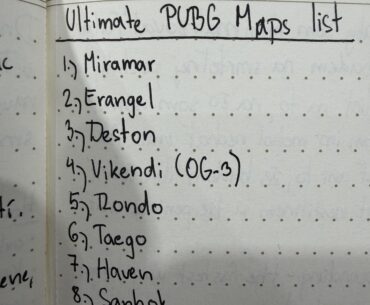 Ultimate PUBG Maps list
1.) Miramar
2.) Erangel
3.) Deston
4.) Vikendi (OG-3)
5.) Rondo
6.) Taego
7.) Haven
8.) Sanhok